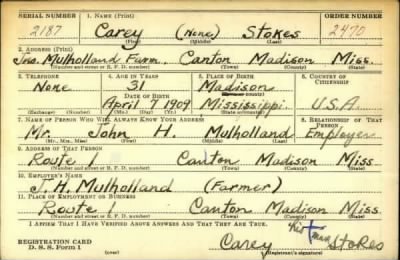 SERIAL NUMBER 1. NAME (Print) ORDER NUMBER
2187 Carey (None) Stokes 2470
(First) (Middle) (Last)
2. ADDRESS (Print)
Jno. Mulholland Farm, Canton Madison Miss.
(Number and street or R. F. D. number) (Town) (County) (State)
3. TELEPHONE 4. AGE IN YEARS 5. PLACE OF BIRTH 6. COUNTRY OF CITIZENSHIP
None 31 Madison
(Town or county)
DATE OF BIRTH
April 7 1909 Mississippi U.S.A.
(Exchange) (Number) (Mo.) (Day) (Yr.) (State or country)
7. NAME OF PERSON WHO WILL ALWAYS KNOW YOUR ADDRESS 8. RELATIONSHIP OF THAT PERSON
Mr. John H. Mulholland Employer
(Mr., Mrs., Miss) (First) (Middle) (Last)
9. ADDRESS OF THAT PERSON
Route 1 Canton Madison Miss
(Number and street or R. F. D. number) (Town) (County) (State)
10. EMPLOYER'S NAME
J. H. Mulholland (Farmer)
11. PLACE OF EMPLOYMENT OR BUSINESS
Route 1 Canton Madison Miss
(Number and street or R. F. D. number) (Town) (County) (State)
I AFFIRM THAT I HAVE VERIFIED ABOVE ANSWERS AND THAT THEY ARE TRUE.
REGISTRATION CARD
D. S. S. Form 1
Carey his mark Stokes
(Registrant's signature)